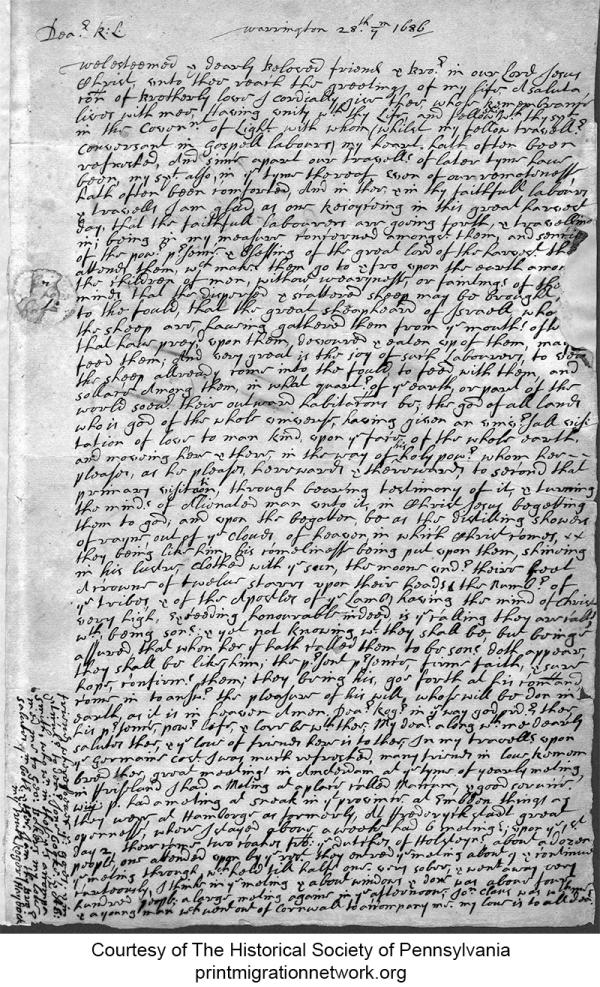 Dear R: L warrington 28th 7/m 1686
welesteemed & dearly Beloved friend & Bror in our Lord Jesus
Christ unto thee reach the greetings of my life A saluta
tion of Brotherly love I cordially give thee, whose remembranse
lives with mee, having unity with thy life and fellowship thy spt
in the Covent of Light with whom (whilst my fellow travellr
conversant in Gospell labours) my heart hath often been
refreshed, And since apart our travells of later time have
been, my spt also, in ye tyme thereof even of our remoteness,
hath often been comforted, And in thee & in thy faithfull labours
& travells I am glad, as one rejoyceing in this great harvest
day, that the faithfull labourers are goeing forth, & travelling
in; being in my measure concerned Amongst them, and
of the powr, presence & blessing of the great lord of the harvest
attends them, wch makes them go to & fro upon the earth
the children of men, without wearyness, or faintings of the
minds that the dispersed & scattered sheep may be brought
to the fould, that the great sheepheard of Israell who
the sheep are, haveing gathered them from ye mouths of
that have preyd upon them, devoured & eaten up of them, may
feed them; And very great is the joy of such labourers, to see
the sheep allready come into the fould, to feed with them, and
sollace Among them, in what quartr of ye earth or part of the
world soevr their outward habitations be; the god of all lands
who is god of the whole univers, having given an universall visi
tation of love to man kind upon ye face of the whole earth,
and moveing here & there, in the way of his holy powr whom hee
pleases, as he pleases, herewards & therewards, to second that
primary visitation, through beareing testimony of it, & turning
the minds of Alienated man unto it, in Christ Jesus begetting
them to god, and upon the begotten, be as the distilling showers
of rayne, out of ye clouds of heaven, in which Christ comes,
they being like him, his comeliness being put upon them, shineing
in his lustre, clothed with ye sun, the moone under theire feet
A crowne of twelve starrs upon their heads, the numbr of
ye tribes, & of the Apostles of ye lamb, having the mind of Christ
very high, exceeding honourable indeed is ye calling they are called
with, being sons, & yet not knowing wt they shall be, but being
assured that when hee yt hath called them to be sons doth appeare,
they shall be like him; the prsent presence, firme faith, & sure
hope, confirms them; they being his, goe forth at his command and
come in to answr the pleasure of his will whose will be don in
earth, as it is in heaven Amen. Dear in ye way god guid thee
his presence, powr life, & love be wth thee. My dear along wth me dearly
salutes thee, & ye love of friends here is to thee. In my travells upon
ye Germane cost I was much refreshed, many friends in love Remem
bred thee, great meetings in Amsterdam at ye tyme of yearly meeting
in Frisland I had a meeting at a place called & good service
had a meeting at Sneak in ye province at Embden things as
they were, at Hamborge as formerly, At Frederyckstadt great
openness, where I stayed above a weeke, had 6 meetings, upon ye 1st
day 2, there come two coaches fro. ye Dutches of Holsteyns, about a dozen
people, one attended upon by ye rest they entred ye meeting about 9 & continued
ye meeting through, wch held till halfe one. very sober, & went away very
courteously, I thinke in ye meeting & about windows & dore was about four
hundred people, a large meeting againe in ye afternoon. Jon Claus was wth me
& a young man wch went out of Cornwall to accompany me. my love is to all
Courtesy of The Historical Society of Pennsylvania
printmigrationnetwork.org